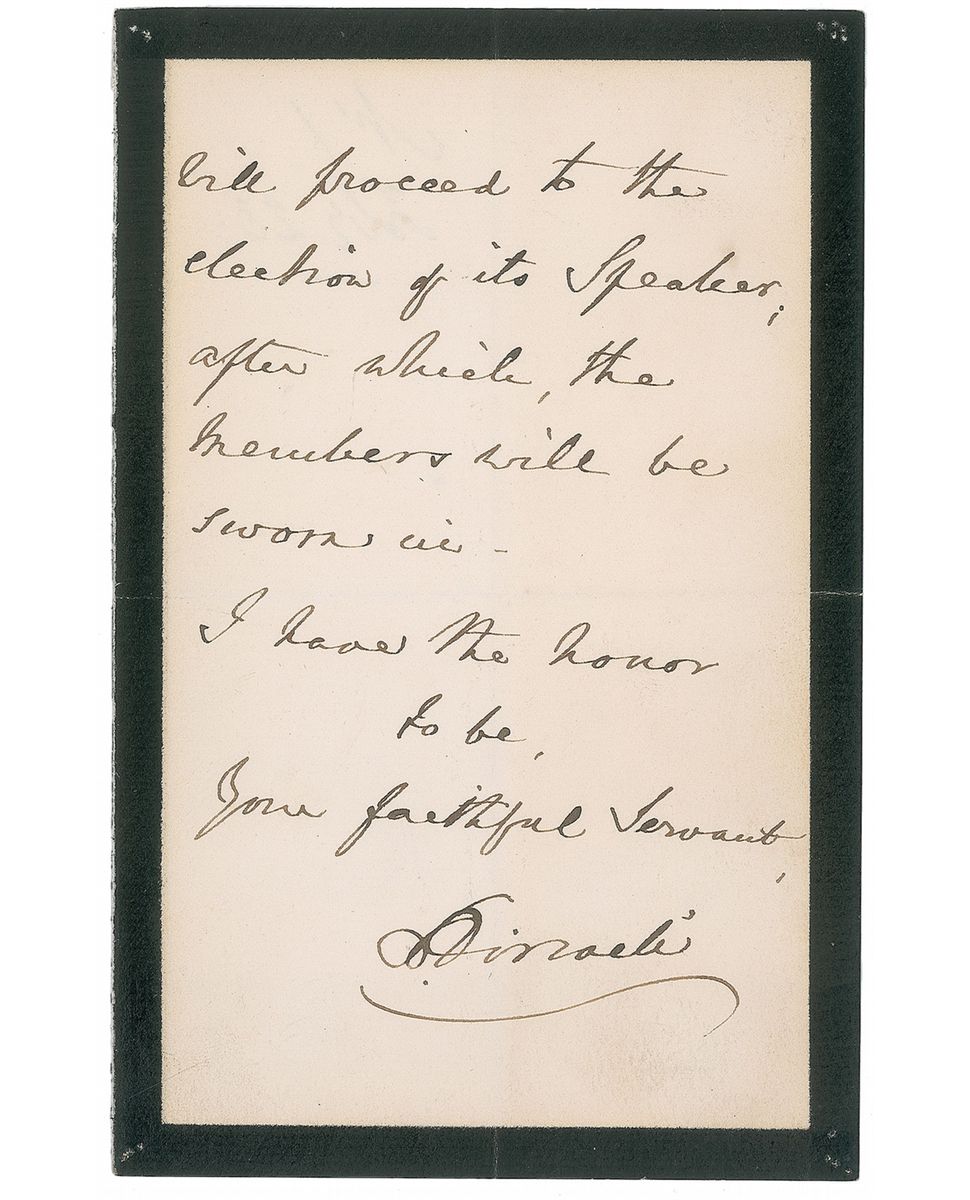 will proceed to the
election of its Speaker;
after which, the
Members will be
sworn in -
I have the honor
to be,
Your faithful Servant,
B. Disraeli